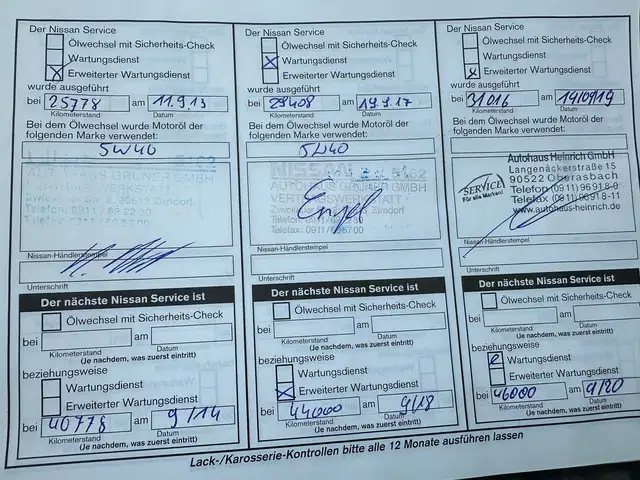 Der Nissan Service
Ölwechsel mit Sicherheits-Check
Wartungsdienst
Erweiterter Wartungsdienst
wurde ausgeführt
bei 25778 am 11.9.13
Kilometerstand Datum
Bei dem Ölwechsel wurde Motoröl der
folgenden Marke verwendet:
5W40
5162
AUTOHAUS GRUNER GMBH
90513 Zirndorf
Telefon: 0911/
Telefax: 0911/
Nissan-Händlerstempel
Unterschrift
Der nächste Nissan Service ist
Ölwechsel mit Sicherheits-Check
bei am
Kilometerstand Datum
(Je nachdem, was zuerst eintritt)
beziehungsweise
Wartungsdienst
Erweiterter Wartungsdienst
bei 40778 am 9/14
Kilometerstand Datum
(Je nachdem, was zuerst eintritt)
Der Nissan Service
Ölwechsel mit Sicherheits-Check
Wartungsdienst
Erweiterter Wartungsdienst
wurde ausgeführt
bei 29408 am 19.9.17
Kilometerstand Datum
Bei dem Ölwechsel wurde Motoröl der
folgenden Marke verwendet:
5W40
NISSAN 5162
AUTOHAUS GRUNER GMBH
VERTRAGSWERKSTATT
Zirndorf
Telefon: 0911/
Telefax: 0911/
Engel
Nissan-Händlerstempel
Unterschrift
Der nächste Nissan Service ist
Ölwechsel mit Sicherheits-Check
bei am
Kilometerstand Datum
(Je nachdem, was zuerst eintritt)
beziehungsweise
Wartungsdienst
Erweiterter Wartungsdienst
bei 44000 am 9/18
Kilometerstand Datum
(Je nachdem, was zuerst eintritt)
Der Nissan Service
Ölwechsel mit Sicherheits-Check
Wartungsdienst
Erweiterter Wartungsdienst
wurde ausgeführt
bei 31016 am 14/09/19
Kilometerstand Datum
Bei dem Ölwechsel wurde Motoröl der
folgenden Marke verwendet:
Autohaus Heinrich GmbH
Langenäckerstraße 15
90522 Oberasbach
Telefon (09 11) 96 91 8-0
Telefax (09 11) 96 91 8-11
www.autohaus-heinrich.de
SERVICE
Für alle Marken!
Nissan-Händlerstempel
Unterschrift
Der nächste Nissan Service ist
Ölwechsel mit Sicherheits-Check
bei am
Kilometerstand Datum
(Je nachdem, was zuerst eintritt)
beziehungsweise
Wartungsdienst
Erweiterter Wartungsdienst
bei 46000 am 9/20
Kilometerstand Datum
(Je nachdem, was zuerst eintritt)
Lack-/Karosserie-Kontrollen bitte alle 12 Monate ausführen lassen